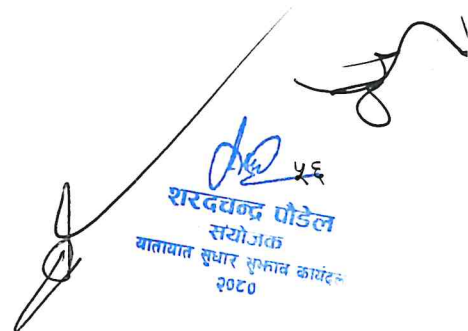 ५६
शरदचन्द्र पौडेल
संयोजक
यातायात सुधार सुझाव कार्यदल
२०८०